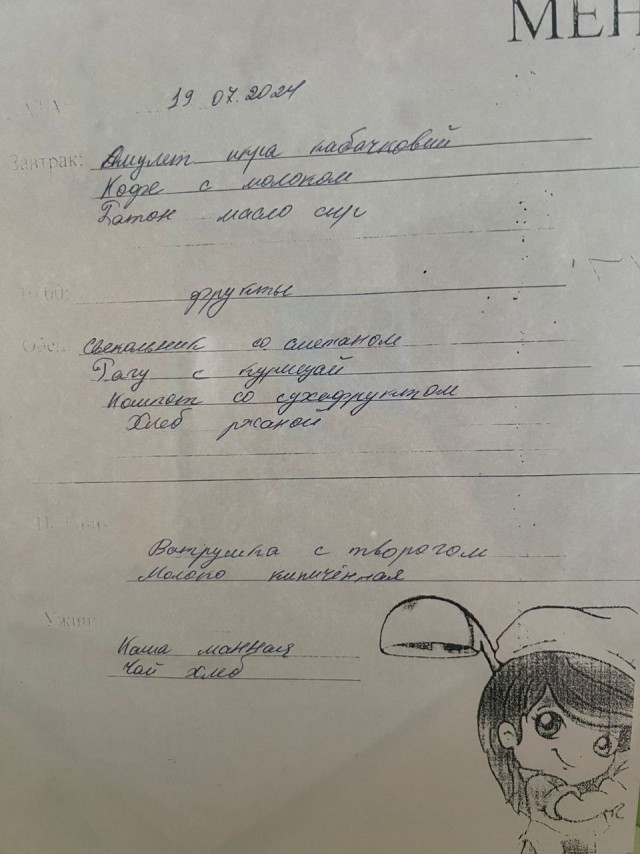 МЕН
19 07.2024
Завтрак: Омулет икра кабачковий
Кофе с молоком
Батон масло сыр
фрукты
Обед: Свекольник со сметаном
Рагу с курицай
Компот со сухофруктом
Хлеб ржаной
Ватрушка с творогом
Молоко кипичённая
Ужин:
Каша манная
Чай хлеб